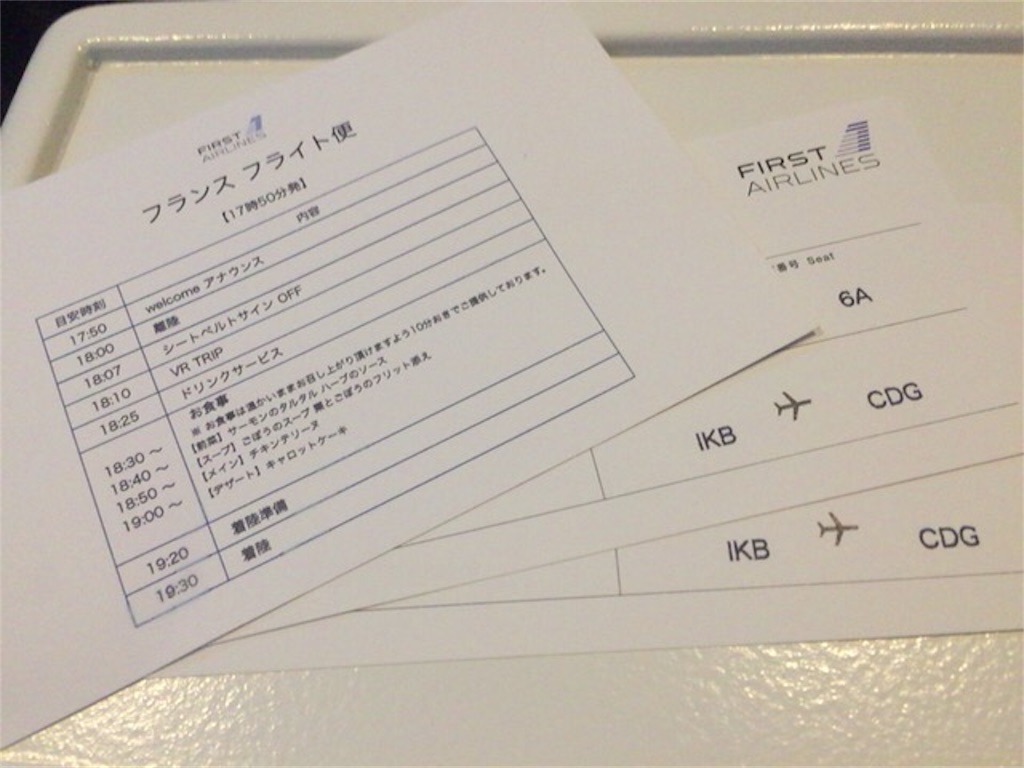 FIRST
AIRLINES
フランス フライト便
【17時50分発】
目安時刻 内容
17:50 welcome アナウンス
18:00 離陸
18:07 シートベルトサイン OFF
18:10 VR TRIP
18:25 ドリンクサービス
お食事
※ お食事は温かいままお召し上がり頂けますよう10分おきでご提供しております。
18:30 ～ 【前菜】サーモンのタルタル ハーブのソース
18:40 ～ 【スープ】ごぼうのスープ 栗とごぼうのフリット添え
18:50 ～ 【メイン】チキンテリーヌ
19:00 ～ 【デザート】キャロットケーキ
19:20 着陸準備
19:30 着陸
FIRST
AIRLINES
番号 Seat
6A
IKB CDG
IKB CDG